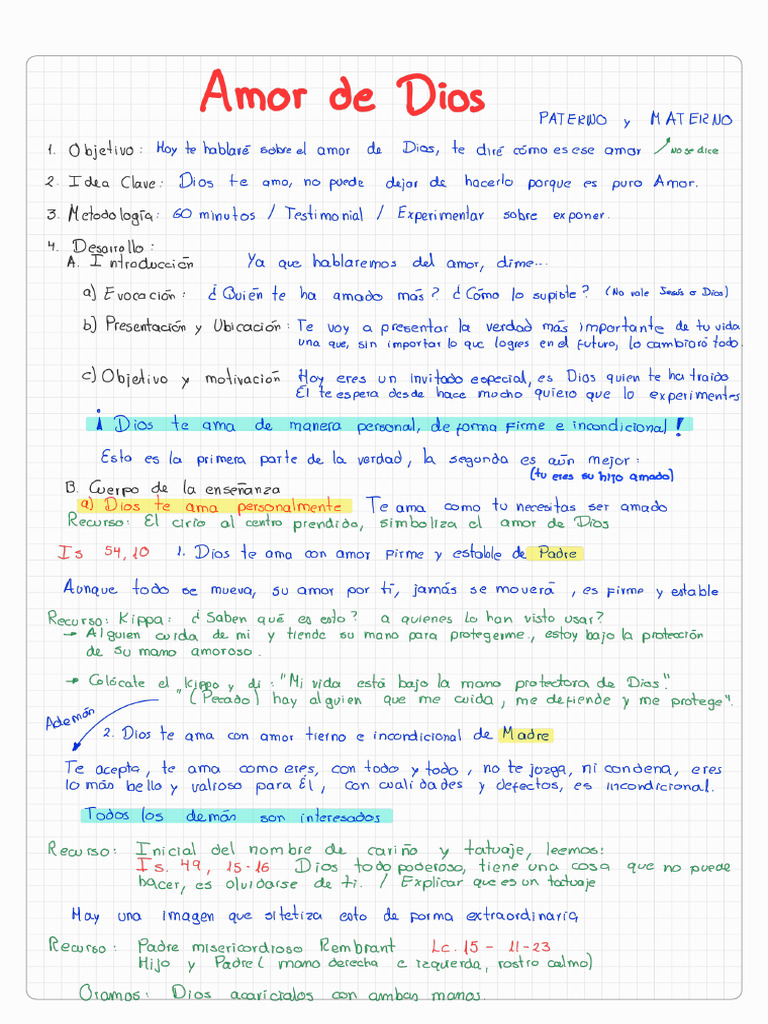 Amor de Dios
PATERNO y MATERNO
1. Objetivo: Hoy te hablaré sobre el amor de Dios, te diré cómo es ese amor
No se dice
2. Idea Clave: Dios te ama, no puede dejar de hacerlo porque es puro Amor.
3. Metodología: 60 minutos / Testimonial / Experimentar sobre exponer.
4. Desarrollo:
A. Introducción Ya que hablaremos del amor, dime...
a) Evocación: ¿Quién te ha amado más? ¿Cómo lo supiste? (No vale Jesús o Dios)
b) Presentación y Ubicación: Te voy a presentar la verdad más importante de tu vida
una que, sin importar lo que logres en el futuro, lo cambiará todo.
c) Objetivo y motivación Hoy eres un invitado especial, es Dios quien te ha traido
Él te espera desde hace mucho quiero que lo experimentes
¡ Dios te ama de manera personal, de forma firme e incondicional !
Esto es la primera parte de la verdad, la segunda es aún mejor:
(tu eres su hijo amado)
B. Cuerpo de la enseñanza
a) Dios te ama personalmente Te ama como tu necesitas ser amado
Recurso: El cirio al centro prendido, simboliza el amor de Dios
Is 54, 10 1. Dios te ama con amor firme y estable de Padre
Aunque todo se mueva, su amor por ti, jamás se moverá, es firme y estable
Recurso: Kippa: ¿Saben qué es esto? a quienes lo han visto usar?
→ Alguien cuida de mi y tiende su mano para protegerme, estoy bajo la protección
de su mano amoroso.
→ Colócate el Kippa y di: "Mi vida está bajo la mano protectora de Dios".
"(Pecado) hay alguien que me cuida, me defiende y me protege".
Además
2. Dios te ama con amor tierno e incondicional de Madre
Te acepta, te ama como eres, con todo y todo, no te jozga, ni condena, eres
lo más bello y valioso para Él, con cualidades y defectos, es incondicional.
Todos los demás son interesados
Recurso: Inicial del nombre de cariño y tatuaje, leemos:
Is. 49, 15-16 Dios todo poderoso, tiene una cosa que no puede
hacer, es olvidarse de ti. / Explicar que es un tatuaje
Hay una imagen que sitetiza esto de forma extraordinaria
Recurso: Padre misericordioso Rembrant Lc. 15 - 11-23
Hijo y Padre (mano derecha e izquerda, rostro calmo)
Oramos: Dios acaricialos con ambas manos.